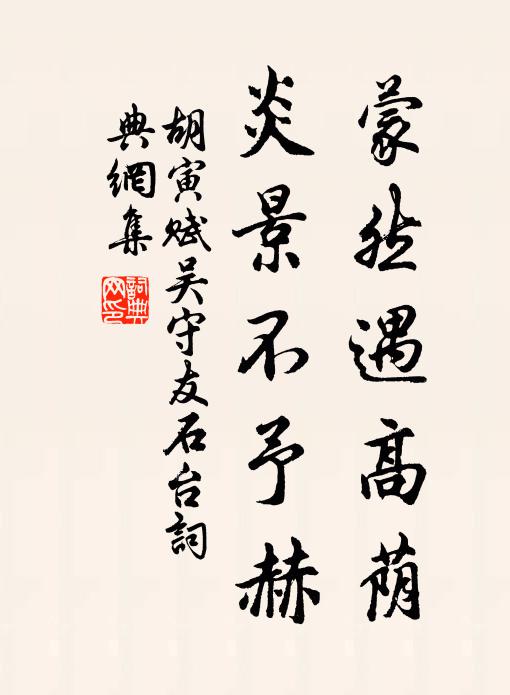 蒙然遇高荫
炎景不予赫
胡寅赋吴守友石台詞
典網集
詞典網印